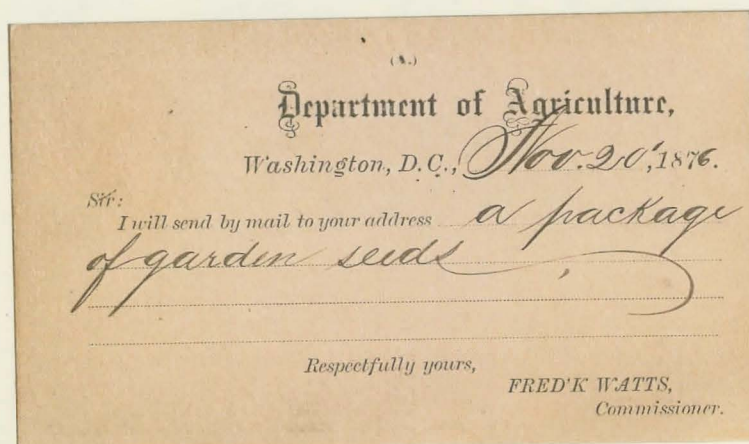 (A.)
Department of Agriculture,
Washington, D.C., Nov. 20, 1876.
Sir:
I will send by mail to your address a package
of garden seeds
Respectfully yours,
FRED'K WATTS,
Commissioner.